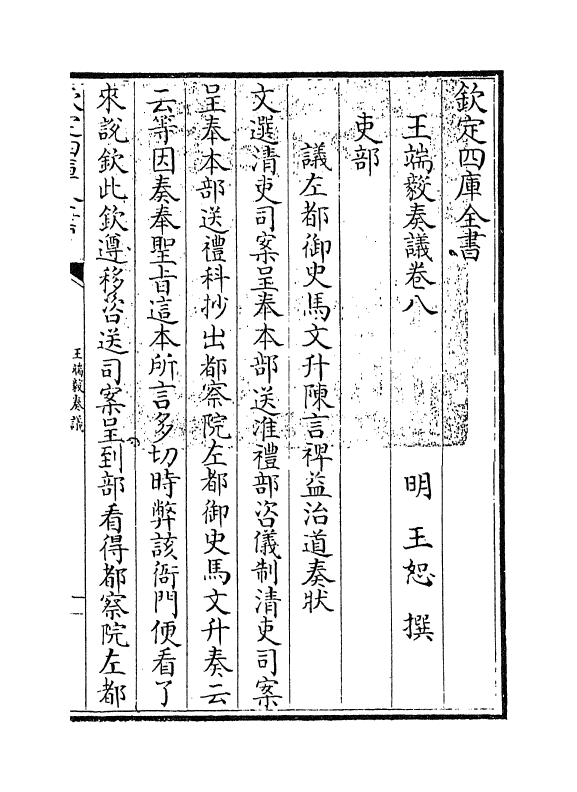 欽定四庫全書
王端毅奏議卷八
明　王恕　撰
吏部
議左都御史馬文升陳言裨益治道奏狀
文選清吏司案呈奉本部送准禮部咨儀制清吏司案
呈奉本部送禮科抄出都察院左都御史馬文升奏云
云等因奏奉聖旨這本所言多切時弊該衙門便看了
來說欽此欽遵移咨送司案呈到部看得都察院左都
欽定四庫全書
王端毅奏議
一